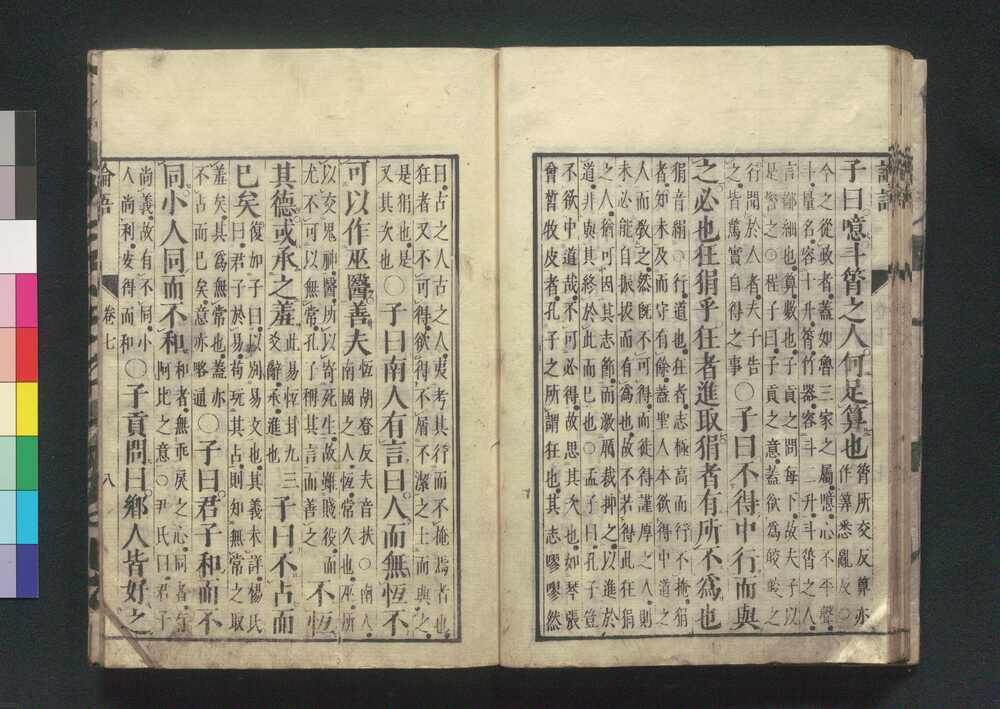 論語
子曰噫斗筲之人何足算也
筲所交反算亦
作筭悉亂反〇
今之從政者蓋如魯三家之屬噫心不平聲
斗量名容十升筲竹器容斗二升斗筲之人
言鄙細也算數也子貢之問每下故夫子以
是警之〇程子曰子貢之意蓋欲爲皎皎之
行聞於人者夫子告
之皆篤實自得之事
〇子曰不得中行而與
之必也狂狷乎狂者進取狷者有所不爲也
狷音絹〇行道也狂者志極高而行不掩狷
者知未及而守有餘蓋聖人本欲得中道之
人而教之然既不可得而徒得謹厚之人則
未必能自振拔而有爲也故不若得此狂狷
之人猶可因其志節而激厲裁抑之以進於
道非與其終於此而已也〇孟子曰孔子豈
不欲中道哉不可必得故思其次也如琴張
曾晳牧皮者孔子之所謂狂也其志嘐嘐然
曰古之人古之人夷考其行而不掩焉者也
狂者又不可得欲得不屑不潔之士而與之
是狷也是
又其次也
〇子曰南人有言曰人而無恆不
可以作巫醫善夫
恆胡登反夫音扶〇南人
南國之人恆常久也巫所
以交鬼神醫所以寄死生故雖賤役而
尤不可以無常孔子稱其言而善之
不恆
其德或承之羞
此易恆卦九三
爻辭承進也
子曰不占而
已矣
復加子曰以別易文也其義未詳楊氏
曰君子於易苟玩其占則知無常之取
羞矣其爲無常也蓋亦
不占而已矣意亦略通
〇子曰君子和而不
同小人同而不和
和者無乖戾之心同者有
阿比之意〇尹氏曰君子
尚義故有不同小
人尚利安得而和
〇子貢問曰鄉人皆好之
論語
卷七
八